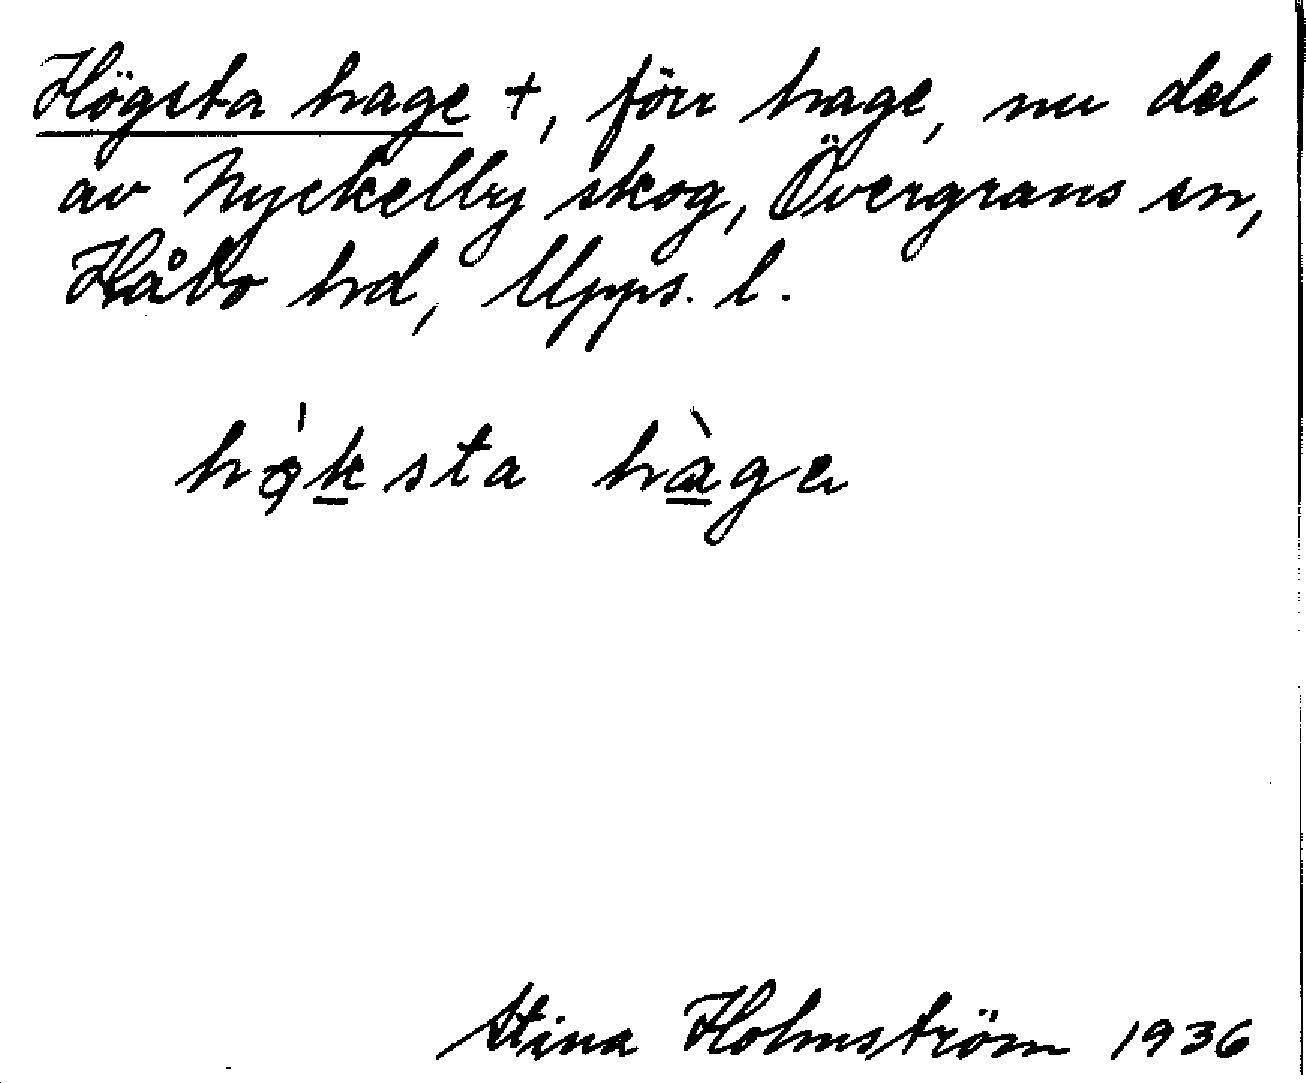 Högsta hage +, förr hage, nu del
av Nyckelby skog, Övergrans sn,
Håbo hd, Upps. l.
hǫ̍k̲sta hà̲ge
Stina Holmström 1936